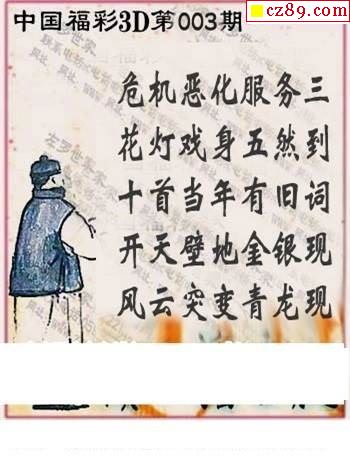 中国福彩3D第003期
cz89.com
危机恶化服务三
花灯戏身五然到
十首当年有旧词
开天壁地金银现
风云突变青龙现